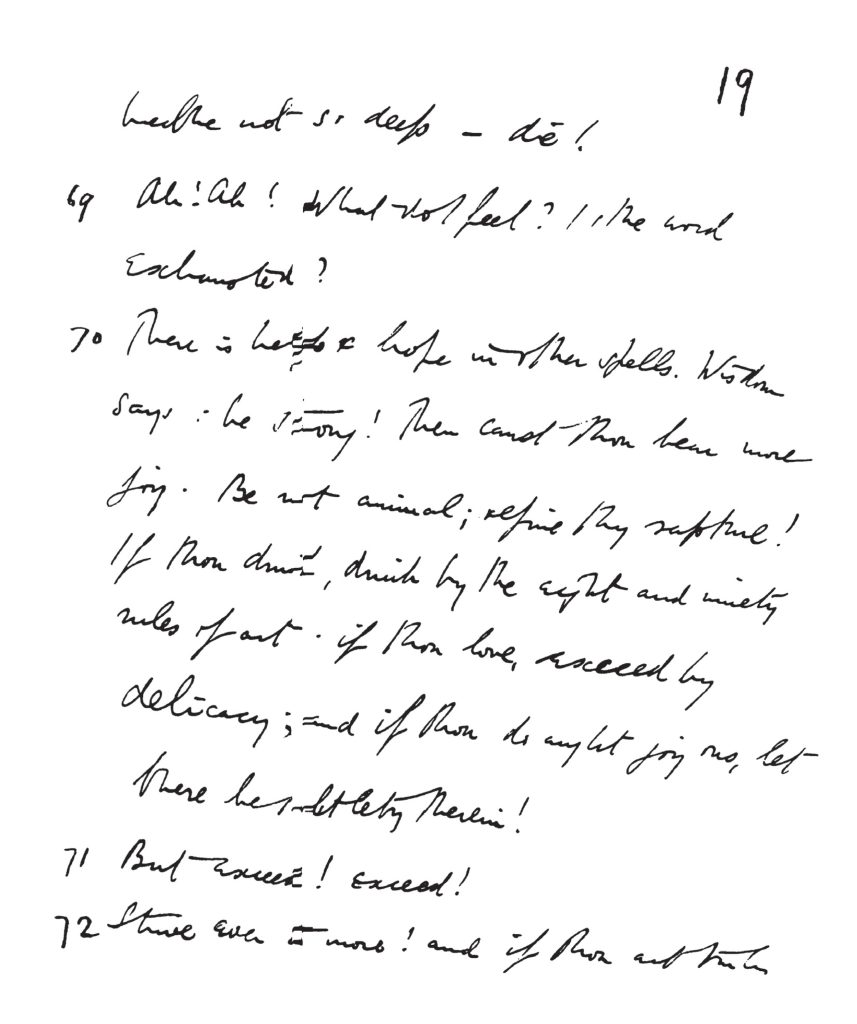 19
breathe not so deep – die!
69 Ah! Ah! What do I feel? Is the word
exhausted?
70 There is help & hope in other spells. Wisdom
says: be strong! Then canst thou bear more
joy. Be not animal; refine thy rapture!
If thou drink, drink by the eight and ninety
rules of art: if thou love, exceed by
delicacy; and if thou do aught joyous, let
there be subtlety therein!
71 But exceed! exceed!
72 Strive ever to more! and if thou art truly